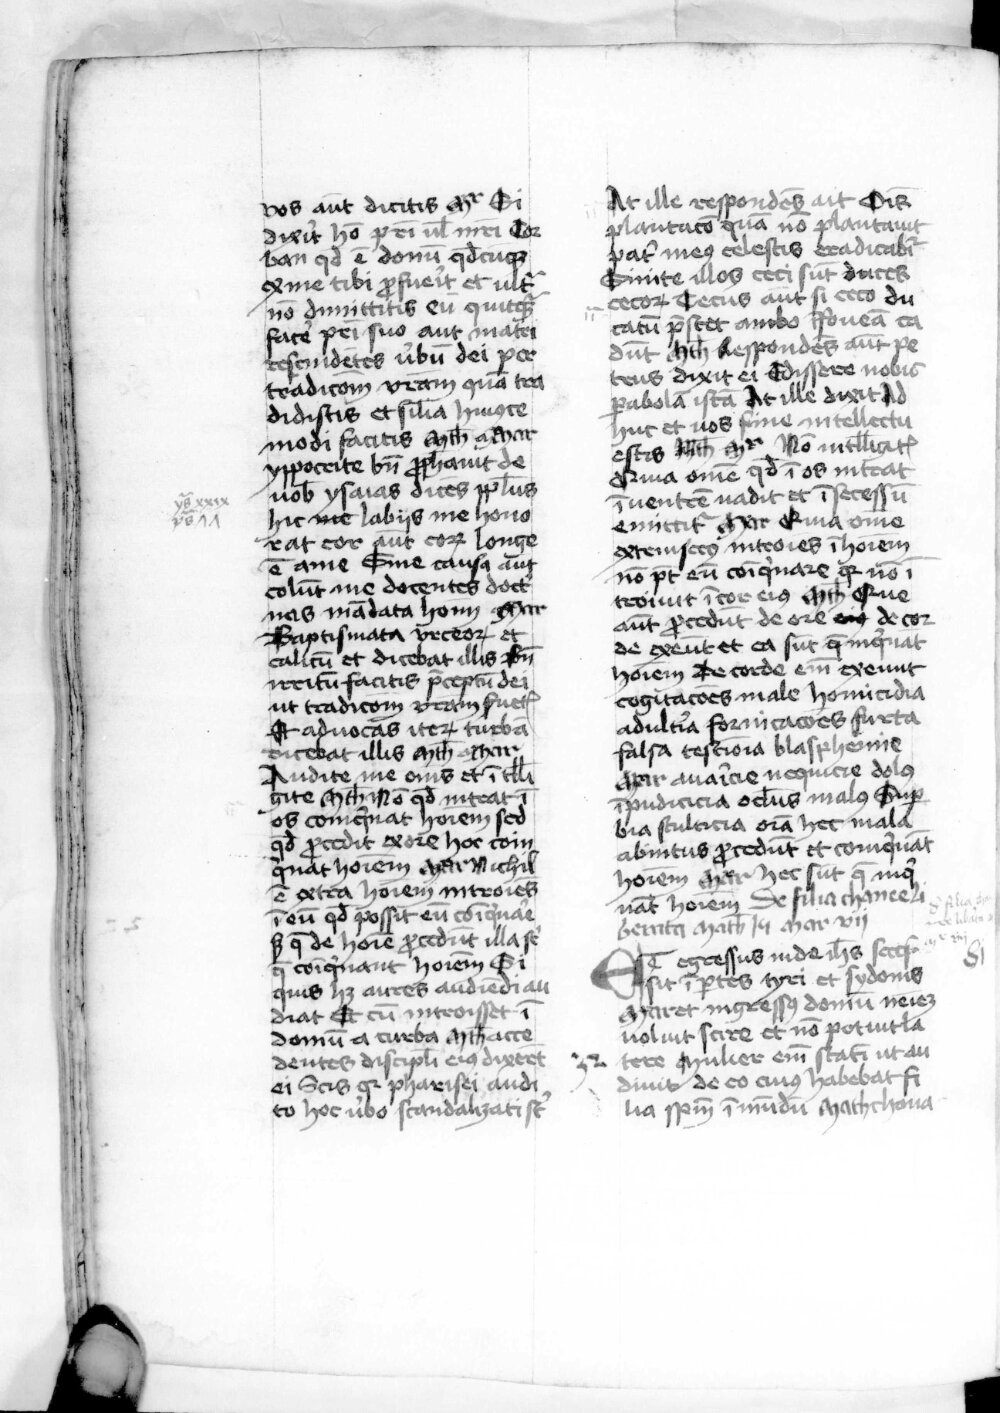 vos aūt dicitis Mr̄ Si
dixit̉ hō pr̄i ul̄ mr̄i Cor
ban qd̄ ē donū qd̄cūqꝫ
ex me tibi ꝓfueīt et ult̉
nō dimittitis eū quitq̄ꝫ
facē pr̄i suo aut matri
rescindētes v̉bū dei per
tradicōm vr̄am quā tra
didistis et sīlia huꝰce
modi facitis Mth̄ Mar
yppocrite bn̄ ꝓphauit de
uob̄ ysaias dicēs ppl̄us
hic me labijs me hono
rat cor aūt eoꝝ longe
ē a me Sine causa aūt
colūt me docentes doct̉
nas mādata hoīm Mar
Baptismata vrceoꝝ et
calicū et dicebat illis Bn̄
irritū facitis p̄ceptū dei
ut tradicōm vr̄am suet̉
Et aduocās iteꝝ turbā
dicebat illis Mth̄ Mar
Audite me om̄s et ītell̄i
gite Mth̄ Nō qd̄ intrat ī
os coinq̉nat hoīem sed
qd̄ ꝓcedit ex ore hoc coin
q̉nat hoīem Mar Nichil
ē extra hoīem introiēs
ī eū qd̄ possit eū coīq̉nar̉e
sꝫ q̄ de hoīe ꝓcedūt illa st̄
q̄ coīq̉nant hoīem Si
quis hꝫ aures audiēdi au
diat Et cū introisset ī
domū a turba Mth̄ acce
dentes discipl̄i eiꝰ dixer̄t
ei Scis qꝛ pharisei audi
to hoc v̉bo scandalizati st̄
ys̄ xxix
At ille respondēs ait Oīs
plantacō quā nō plantauit
pat̉ meꝰ celestis eradicabit̉
Sinite illos ceci sūt duces
cecoꝝ Cecus aūt si ceco du
catū p̄stet ambo ī foueā ca
dūt Mth̄ Respondēs aūt pe
trus dixit ei Edissere nobis
ꝑabolā istā At ille dixit Ad
huc et uos sine intellectu
estis Mth̄ Mr̄ Nō intll̄igit̉
Quia omē qd̄ ī os intrat
ī uentrē uadit et ī secessū
emittit̉ Mar Quia omē
extrinsecꝰ introiēs ī hoīem
nō pt̄ eū coīq̉nare qꝛ nō ī
troiuit ī cor eiꝰ Mth̄ Que
aūt ꝓcedūt de ore eiꝰ de cor
de exeūt et ea sūt q̄ inq̉nat
hoīem De corde em̄ exeunt
cogitacōes male homicidia
adult̉ia fornicacōes furta
falsa testīoīa blasphemie
Mar auaricie nequicie dolꝰ
īpudicicia ocl̄us malꝰ Suꝑ
bia stulticia om̄ia hec mala
abintus ꝓcedūt et coinq̉nāt
hoīem Mar hec sūt q̄ inq̉
nāt hoīem De filia chanee
Math Mar vij
Et egressus inde ih̄s secess̉
sit ī ꝑtes tyri et sydonis
Mar et ingressꝰ domū neīeꝫ
uoluit scire et nō potuit la
tere Mulier em̄ statī ut au
diuit de eo cuiꝰ habebat fi
lia sp̄m īmūdū Math